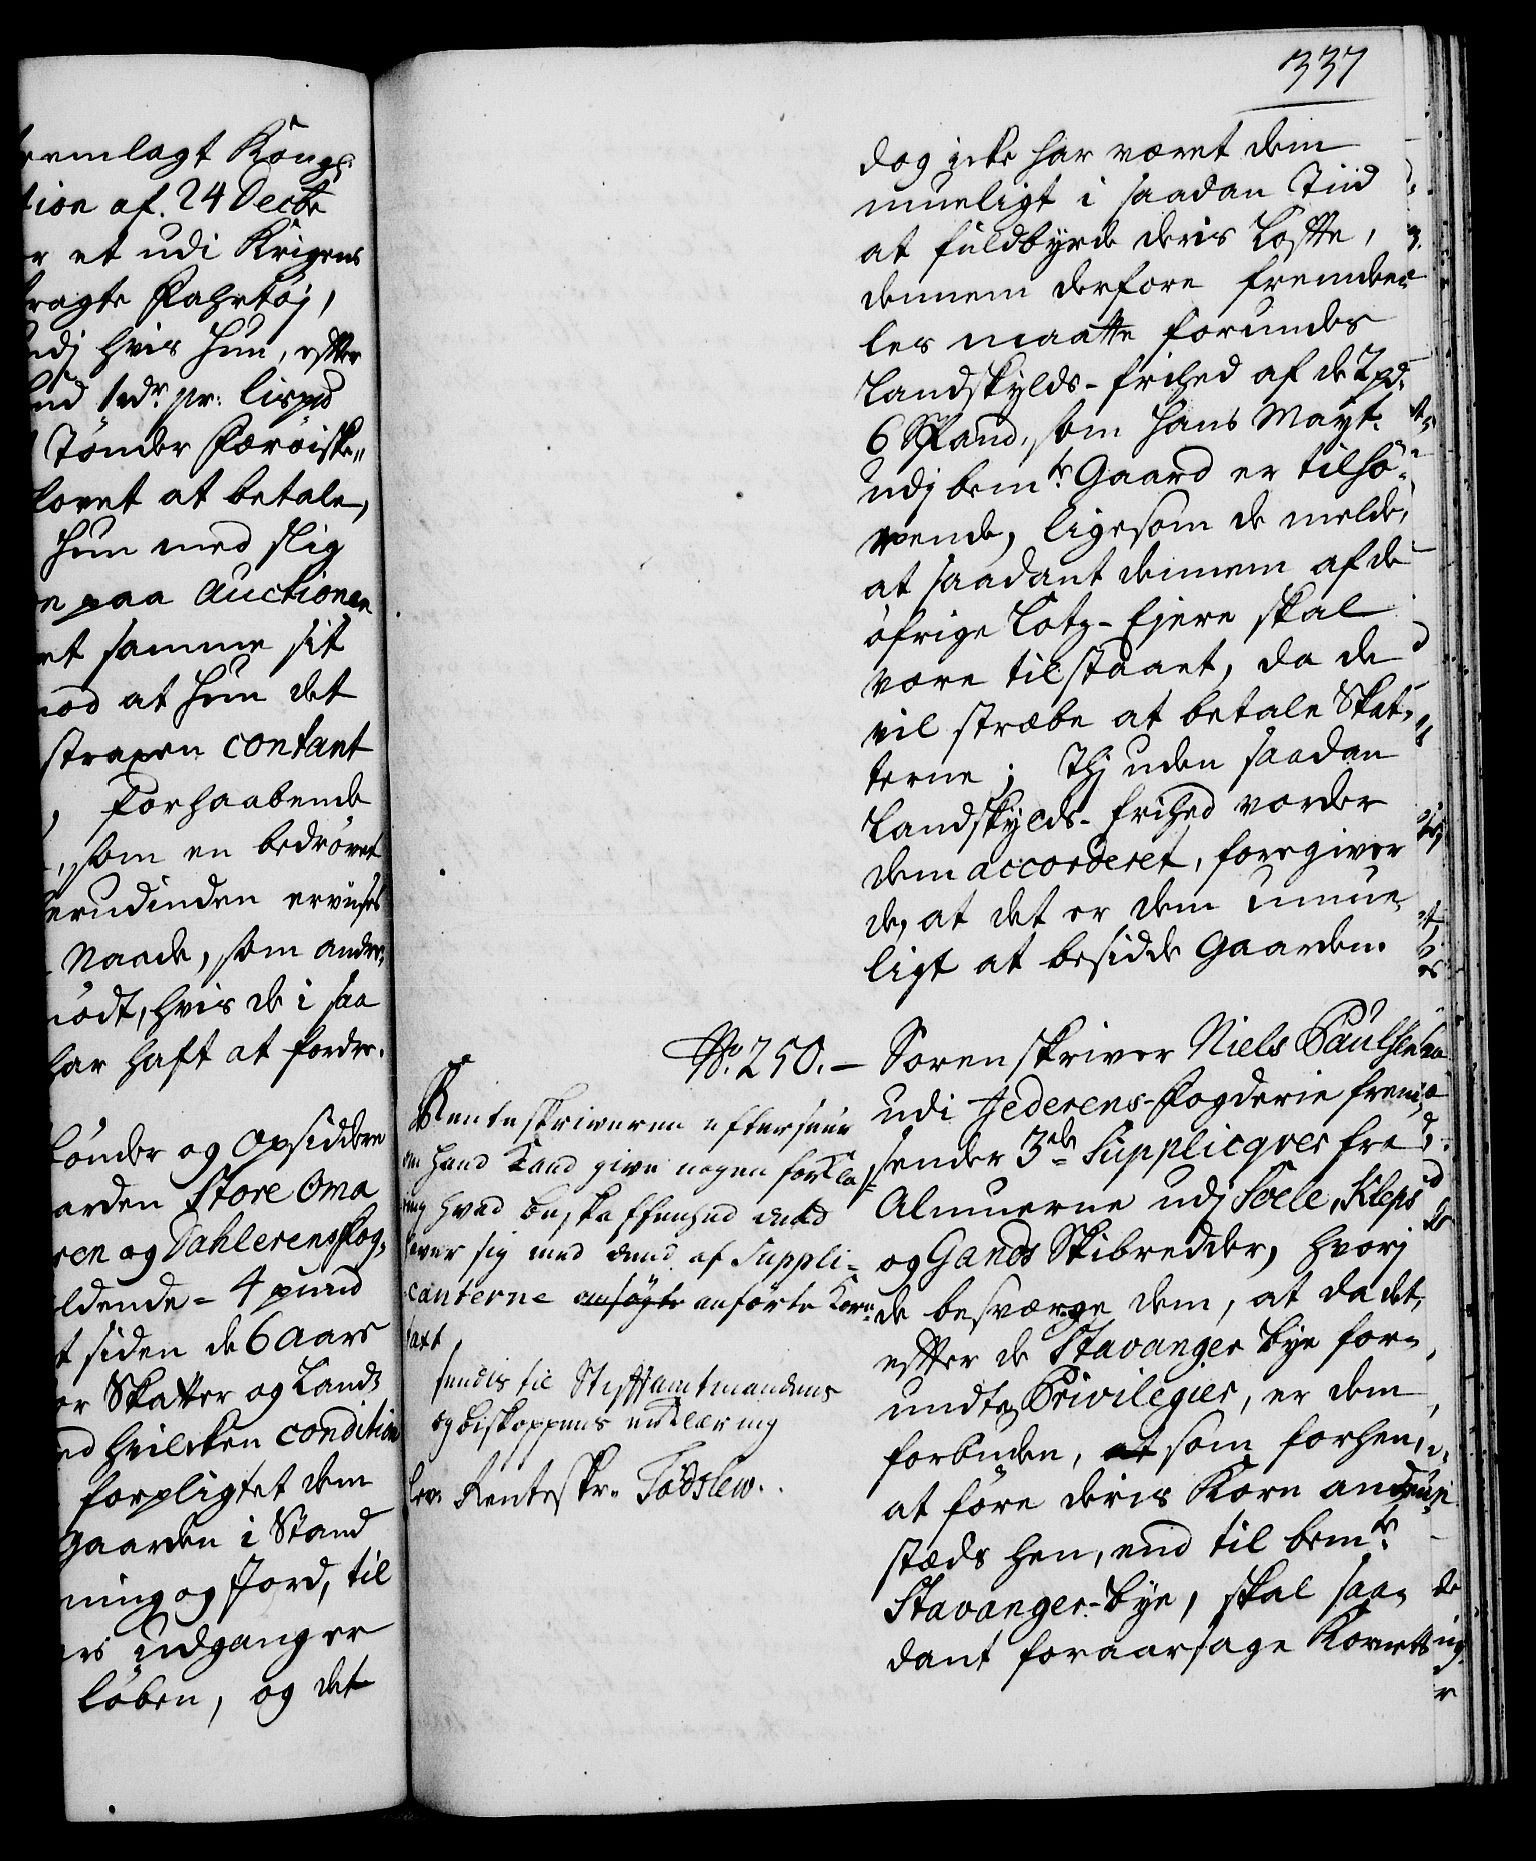 emlagt Kongl:
tion af. 24 Decbr
er et udi Krigens
bragte Fahrtöj,
udj hvis hun, efter
bud 1rdr. pr: lispd
Tönder Færöiske„
lovet at betale,
hun med slig
n paa Auctionen
et samme sit
mod at hun det
straxen contant
, Forhaabende
, som en bedröret
Naade, som andre,
nödt, hvis de i saa
har haft at fordre.
bönder og Opsiddere
aarden Store Oma
ren og Dahlerens Fog„
ldende = 4 pund
t siden de 6 aars
or Skatter og Land„
nd hvilcken condition
forpligtet dem
Gaarden i Stand
ning og Jord, til
ars udgang er
löben, og det
337
dog icke har været dem
mueligt i saadan Tiid
at fuldbyrde deris Löfte,
dennem derfore fremdee„
les maatte forundes
Landskylds-frihed af de 2 pd.
6 Spand, som Hans Mayt.
udj bemte Gaard er tilhö„
rende, ligesom de melde,
at saadant dennem af de
öfrige Lotz-Ejere skal
være tilstaaet, da de
vil stræbe at betale Skat„
terne; Thj uden saadan
Landskylds-frihed vorder
dem accorderet, foregiver
de, at det er dem umue„
ligt at besidde Gaarden.
No. 250. — Sorenskriver Niels Paulsen
udi Jederens-Fogderie frem„
sender 3de Supplicqver fra
Almuerne udj Soele, Kleps
og Gands Skibredder, hvorj
de besværge dem, at da det,
efter de Stavanger bye for„
undte Privilegier, er dem
forbuden, at som forhen,
at före deris Korn anden„
stæds hen, end til bemte
Stavanger-bye, skal saa„
dant foraarsage Kornetts
Renteskriveren efterseer
om hand kand give nogen forkla„
ring hvad beskaffenhed det
haver sig med dend af Suppli=
canterne ansögte anförte Korn-
taxt
sendis til Stiftamtmandens
og biskoppens erklæring
lev. Renteskr. Tödslew.